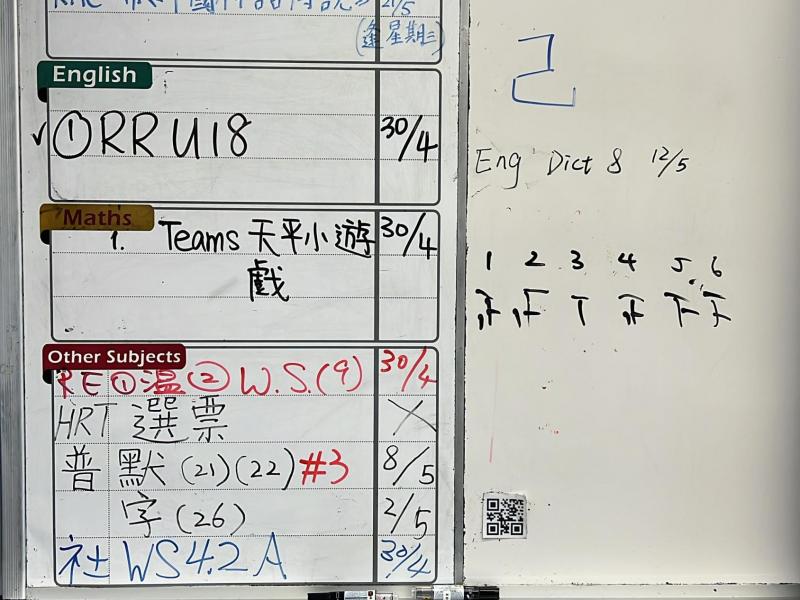 (逢星期三)
21/5
English
✓ ①RR U18 30/4
Maths
1. Teams 天平小遊 30/4
戲
Other Subjects
RE ①溫② W.S.(9) 30/4
HRT 選票 X
普 默(21)(22)#3 8/5
字(26) 2/5
社 WS4.2A 30/4
己
Eng Dict 8 12/5
1 2 3 4 5 6